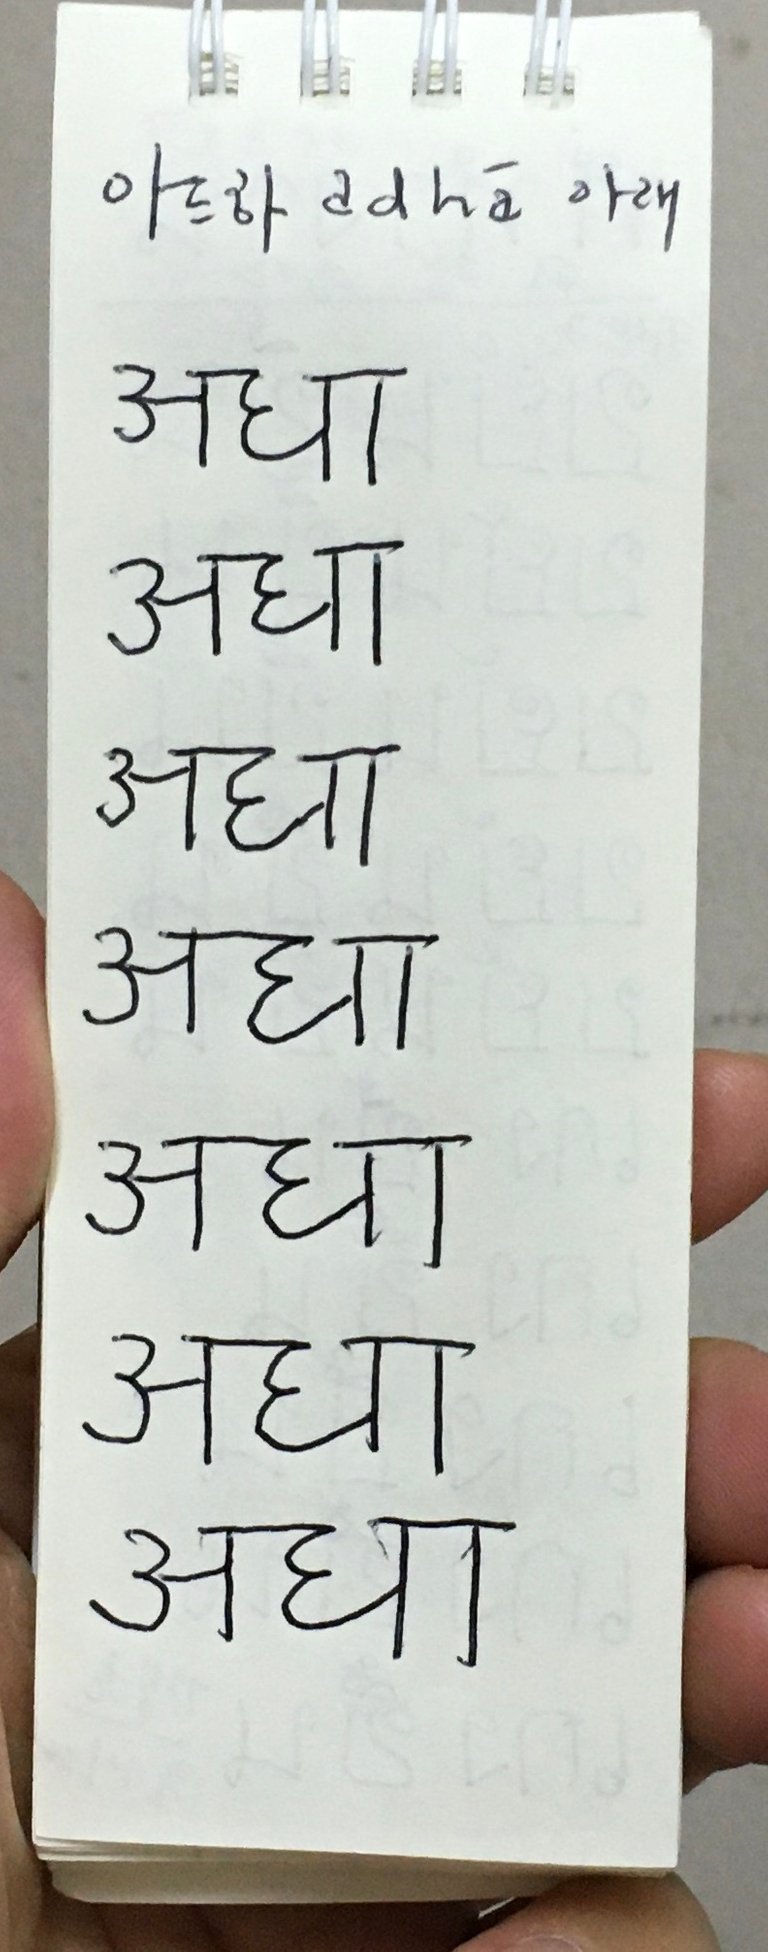 아드하 adhā 아래
अधा
अधा
अधा
अधा
अधा
अधा
अधा